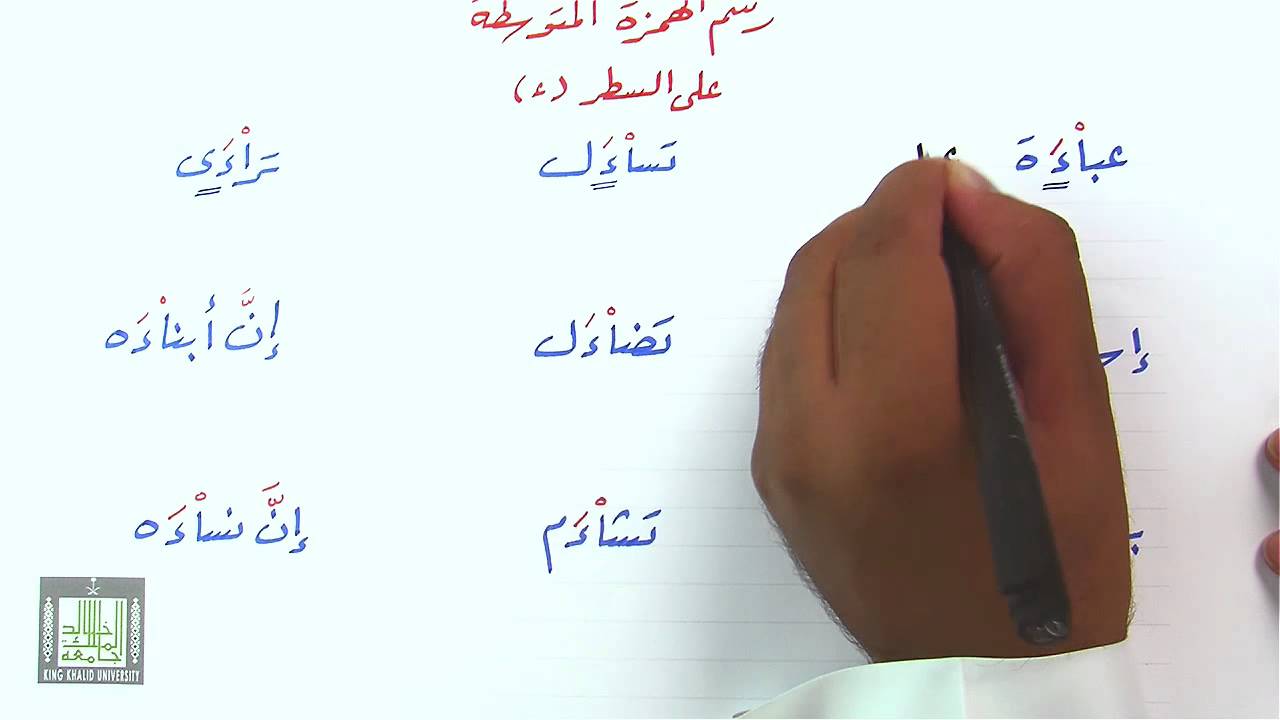 رسم الهمزة المتوسطة
على السطر (ء)
عباْءَة تَساْءَل تَراْءَى
تَضاْءَل إنَّ أبناْءَه
تَشاْءَم إنَّ نساْءَه
جامعة الملك خالد
KING KHALID UNIVERSITY